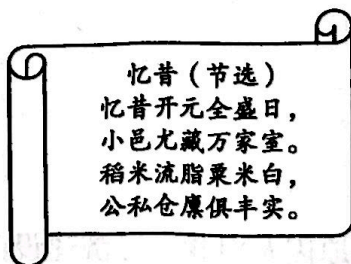 忆昔（节选）
忆昔开元全盛日，
小邑尤藏万家室。
稻米流脂粟米白，
公私仓廪俱丰实。